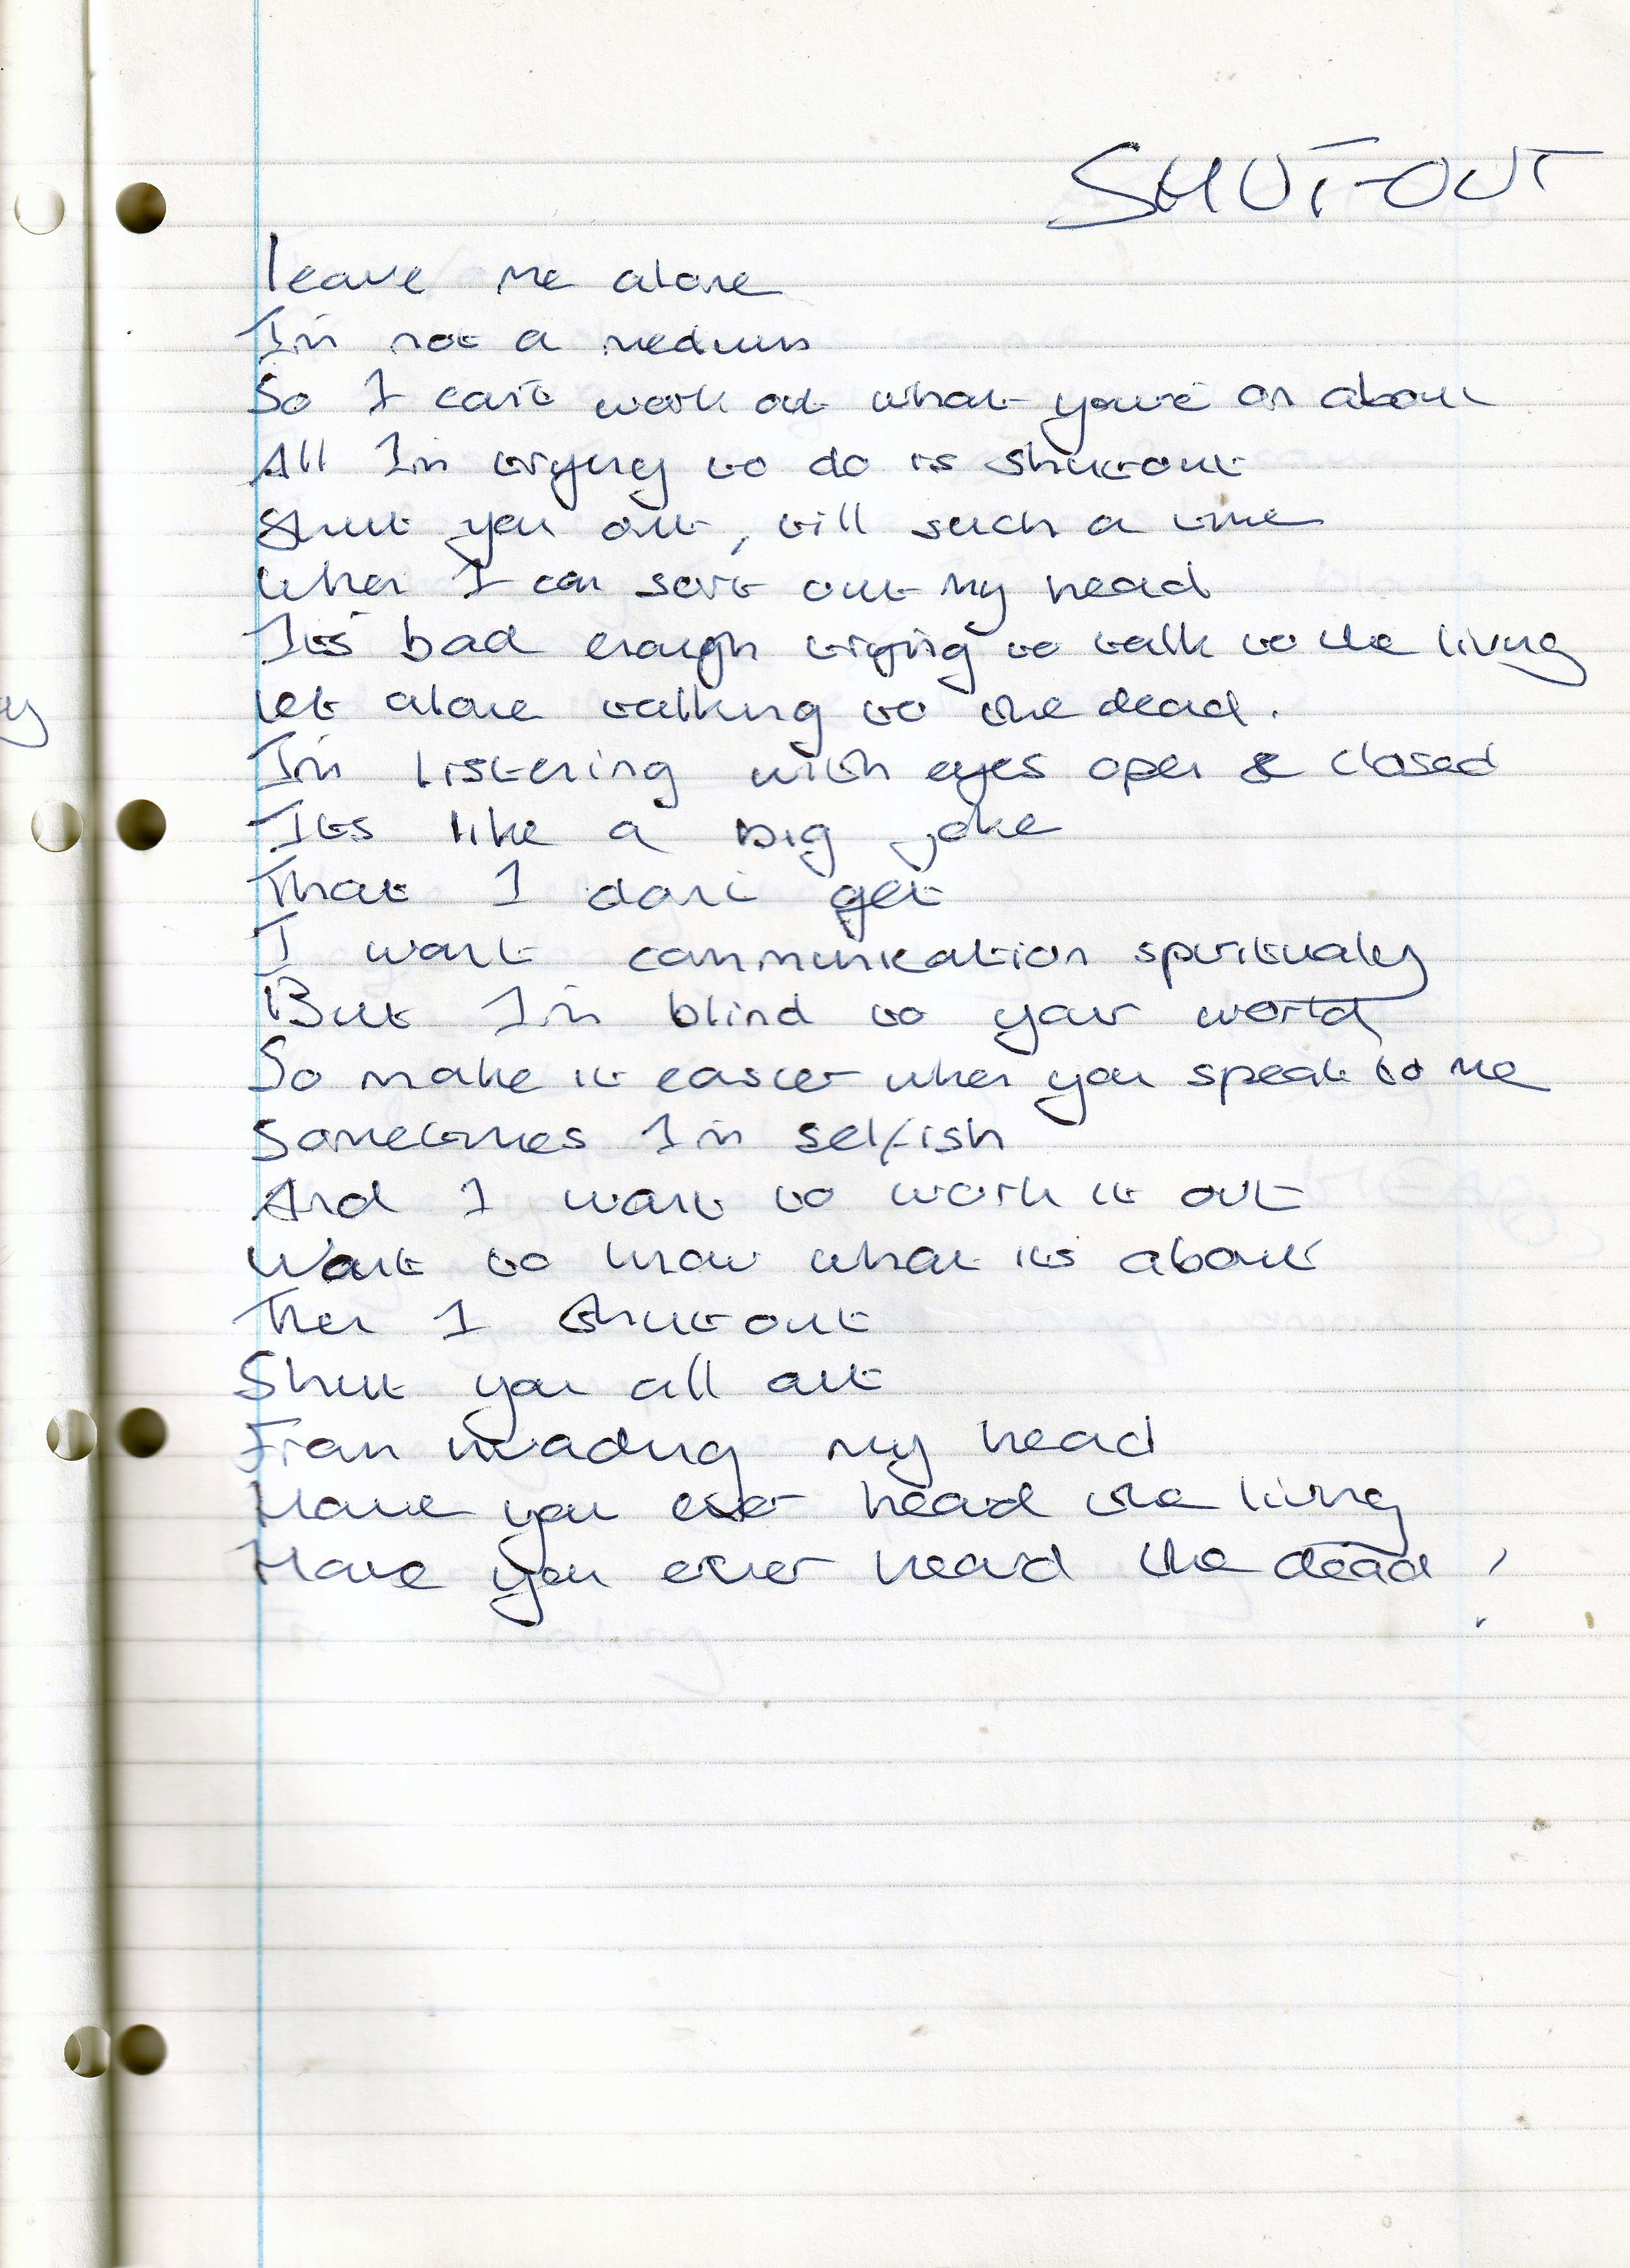 SHUT-OUT
leave me alone
I'm not a medium
So I can't work out what you're on about
All I'm trying to do is shutout
Shut you out, till such a time
When I can sort out my head
It's bad enough trying to talk to the living
let alone talking to the dead.
I'm listening with eyes open & closed
Its like a big joke
That I don't get
I want communication spiritualy
But I'm blind to your world
So make it easier when you speak to me
Sometimes I'm selfish
And I want to work it out
Want to know what it's about
Then I shutout
Shut you all out
From invading my head
Have you ever heard the living
Have you ever heard the dead !